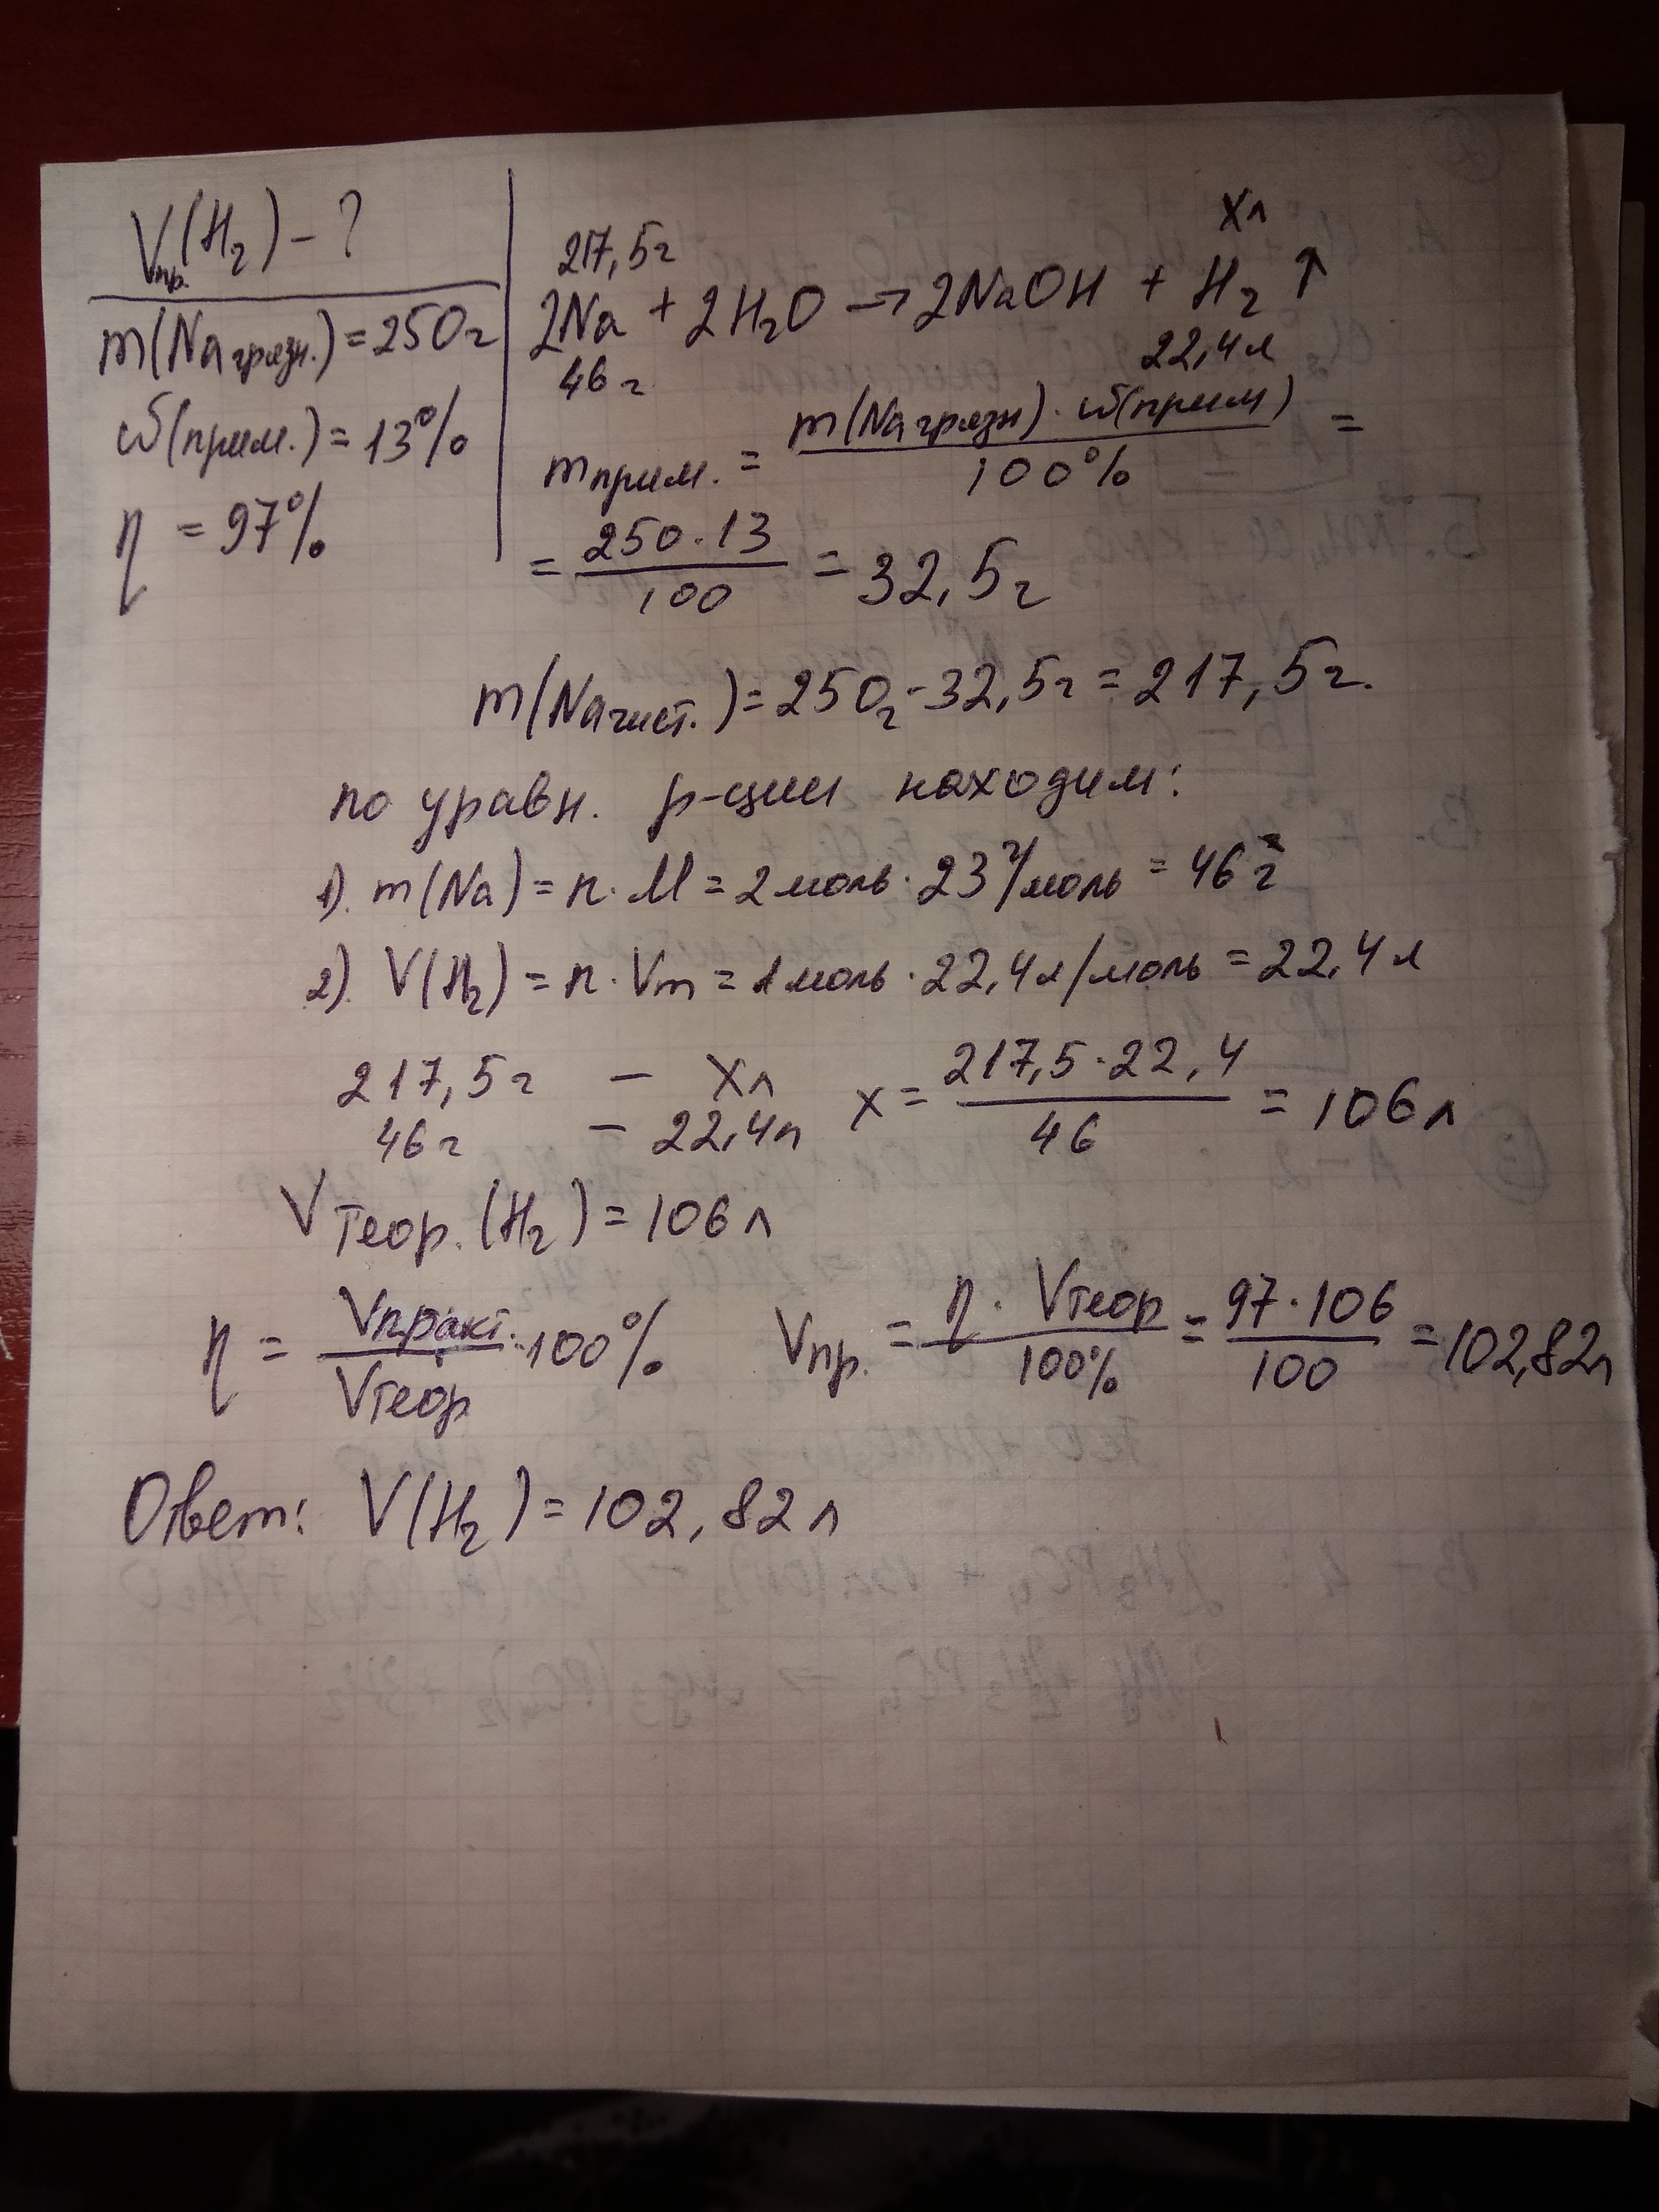 Vпр.(H2) - ?
m(Na грязн.) = 250г
ω(прим.) = 13%
η = 97%
217,5г хл
2Na + 2H2O → 2NaOH + H2 ↑
46г 22,4л
mприм. = m(Na грязн) · ω(прим) / 100% =
= 250 · 13 / 100 = 32,5г
m(Na чист.) = 250г - 32,5г = 217,5г.
по уравн. р-ции находим:
1). m(Na) = n · M = 2 моль · 23 г/моль = 46 г
2). V(H2) = n · Vm = 1 моль · 22,4 л/моль = 22,4 л
217,5г - хл х = 217,5 · 22,4 / 46 = 106 л
46г - 22,4л
Vтеор. (H2) = 106 л
η = Vпракт. / Vтеор · 100% Vпр. = η · Vтеор / 100% = 97 · 106 / 100 = 102,82л
Ответ: V(H2) = 102,82 л